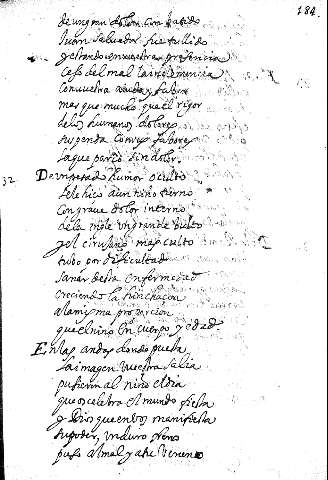 184
de un gran dolor con latido
Juan Salvador fue tullido
y estando en vuestra presencia
ceso del mal la inclemencia
con vuestra ayuda y favor
mas que mucho que el rigor
de los humanos dolores
suspenda con sus favores
la que pario sin dolor.
32 De un pesado humor oculto
se le hiço a un niño tierno
con graue dolor interno
dela ingle un grande bulto
y el cirujano mas culto
tubo por dificultad
sanar desta enfermedad
creciendo la hinchaçon
a la misma proporcion
que el niño en cuerpo y edad
En las andas donde puesta
la imagen vuestra salia
pusieron al niño el dia
que os celebra el mundo fiesta
y Dios que en vos manifiesta
su poder,
pues al mal y veneno